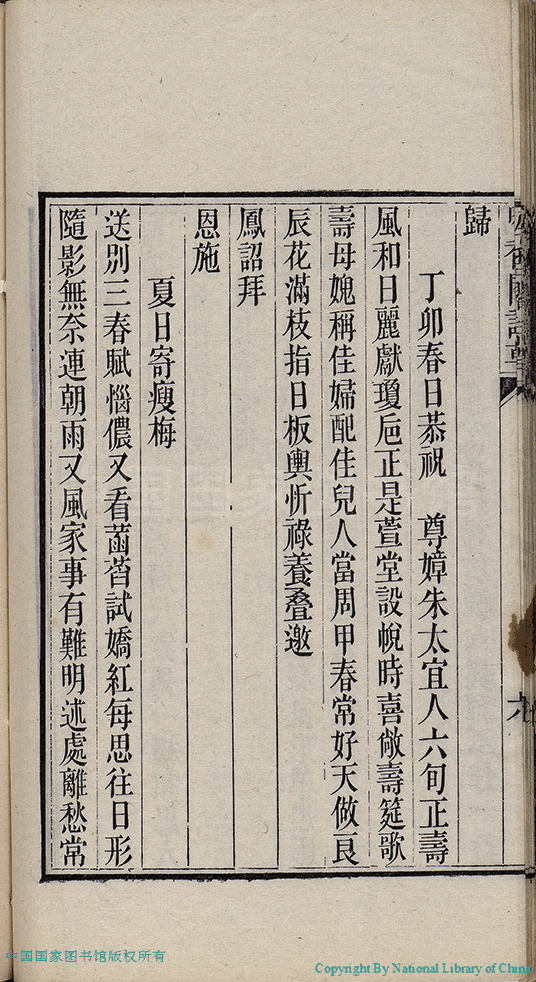 歸
丁卯春日恭祝　尊嫜朱太宜人六旬正壽
風和日麗獻瓊巵正是萱堂設帨時喜敞壽筵歌
壽母媿稱佳婦配佳兒人當周甲春常好天做良
辰花滿枝指日板輿忻祿養叠邀
鳳詔拜
恩施
夏日寄瘦梅
送別三春賦惱儂又看菡萏試嬌紅每思往日形
隨影無奈連朝雨又風家事有難明述處離愁常
中国国家图书馆版权所有
Copyright By National Library of China